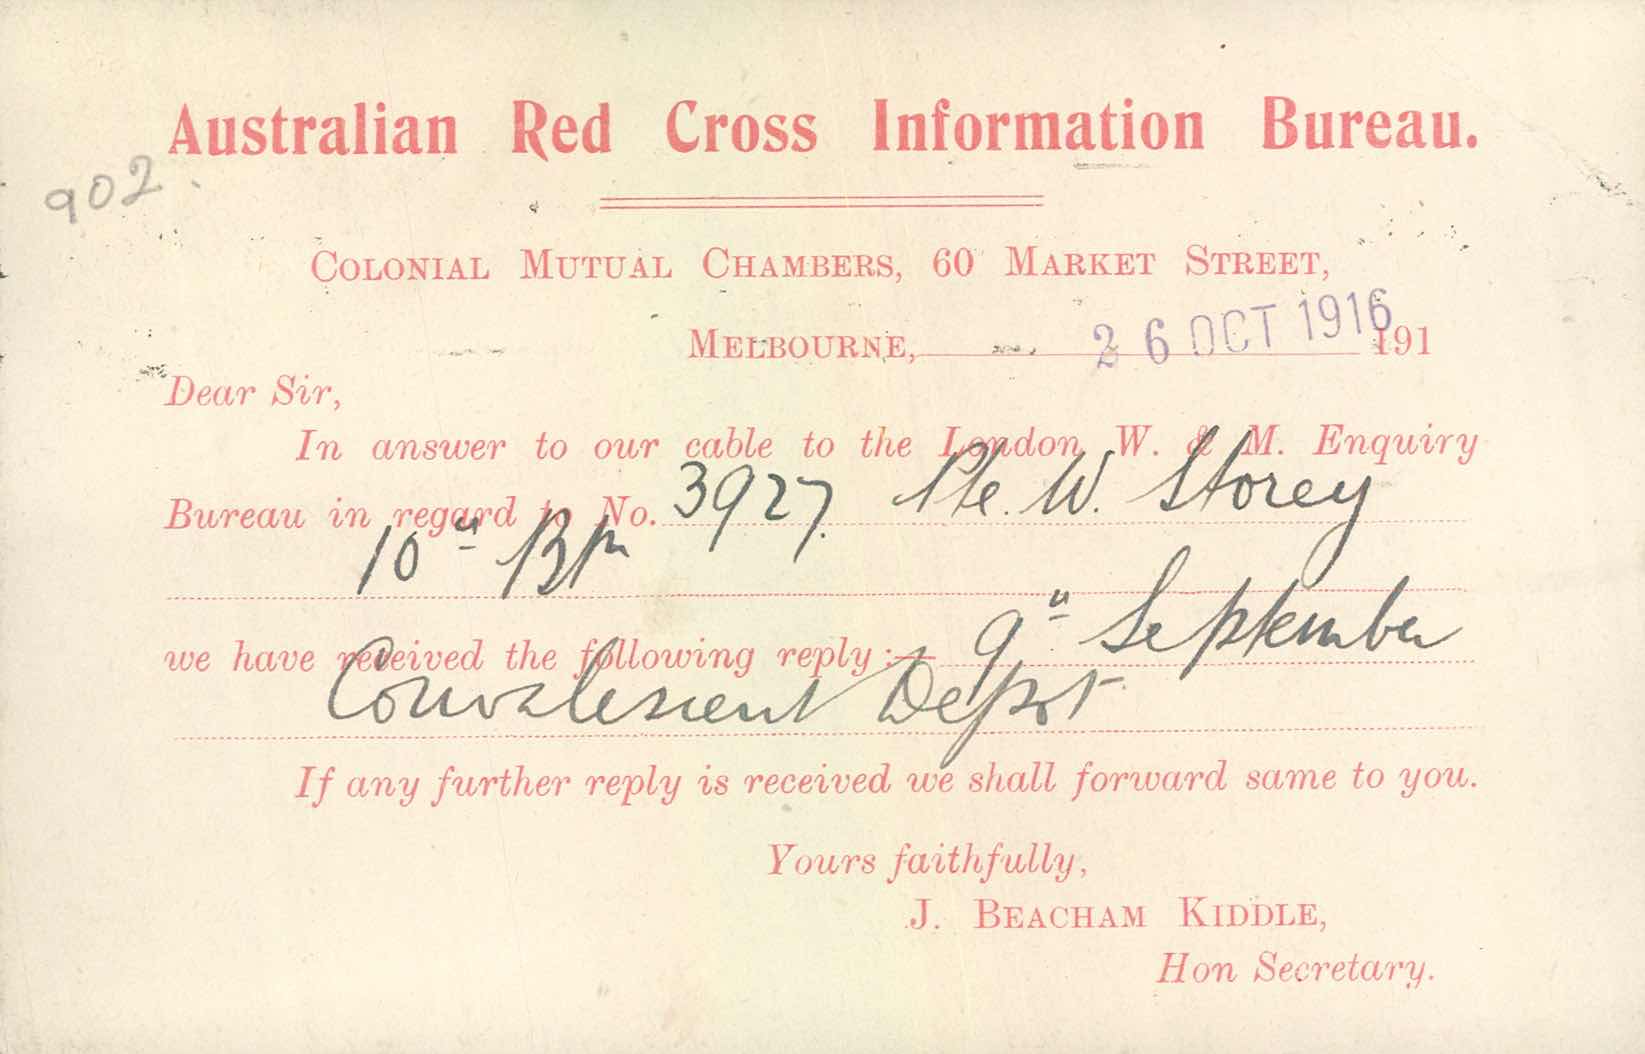 Australian Red Cross Information Bureau.
902.
COLONIAL MUTUAL CHAMBERS, 60 MARKET STREET,
MELBOURNE, 26 OCT 1916 191
Dear Sir,
In answer to our cable to the London W. & M. Enquiry
Bureau in regard to No. 3927. Pte. W. Storey
10th Bn
we have received the following reply:— 9th September
Convalescent Depot.
If any further reply is received we shall forward same to you.
Yours faithfully,
J. BEACHAM KIDDLE,
Hon Secretary.